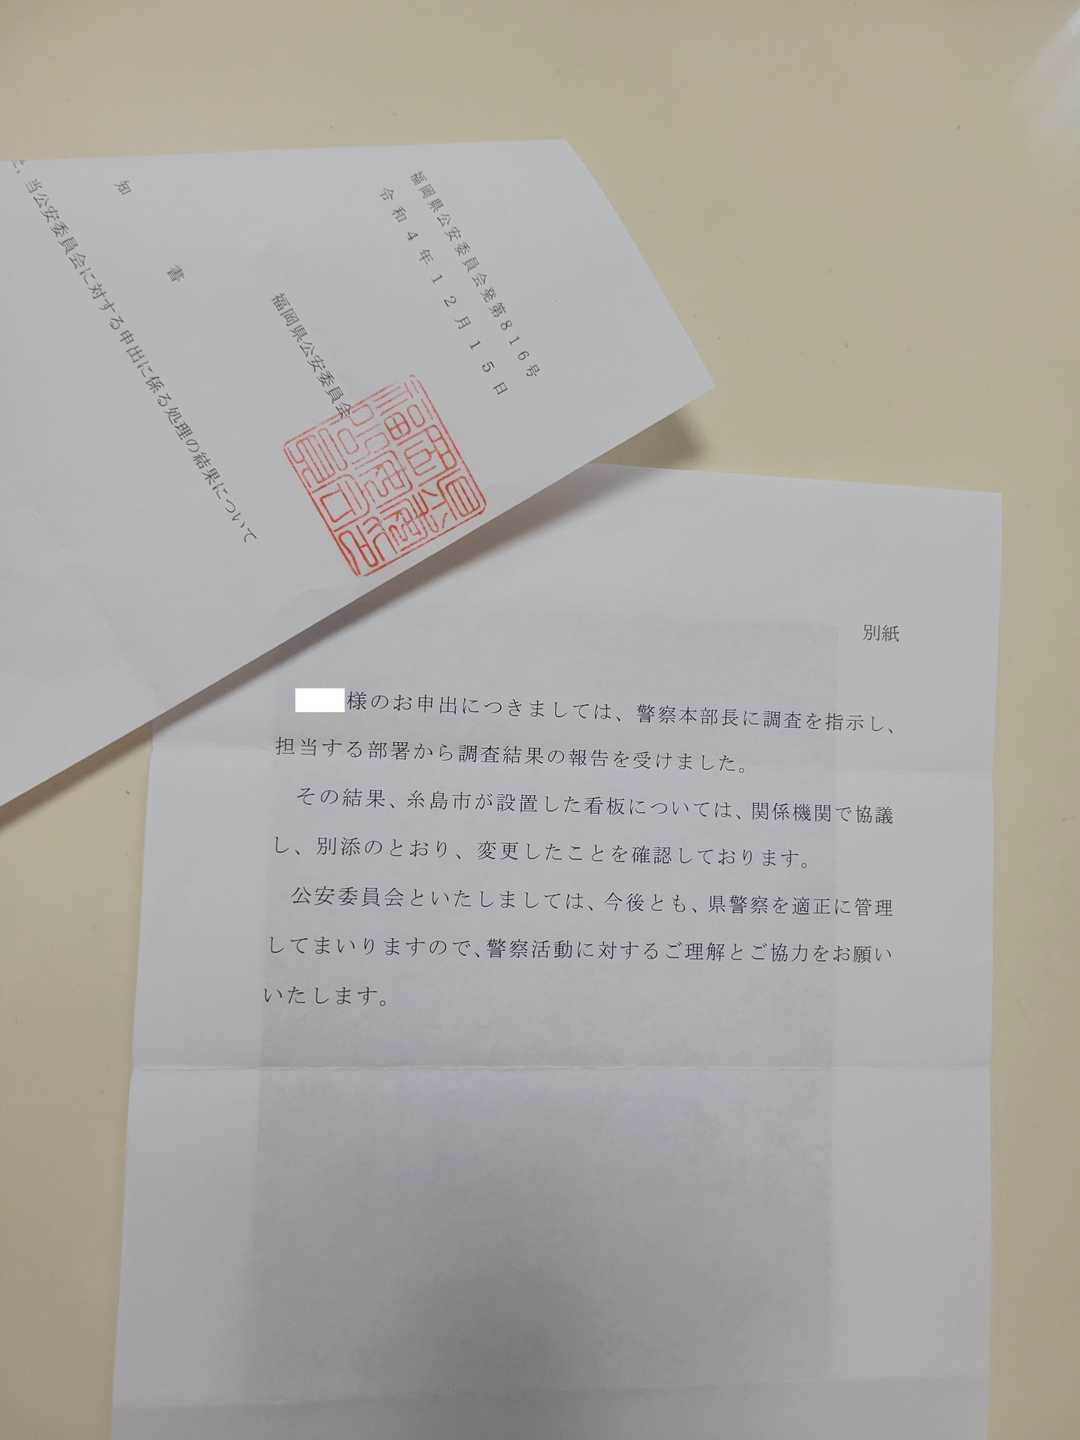 福岡県公安委員会発第816号
令和4年12月15日
福岡県公安委員会
知書
、当公安委員会に対する申出に係る処理の結果について
別紙
様のお申出につきましては、警察本部長に調査を指示し、
担当する部署から調査結果の報告を受けました。
その結果、糸島市が設置した看板については、関係機関で協議
し、別添のとおり、変更したことを確認しております。
公安委員会といたしましては、今後とも、県警察を適正に管理
してまいりますので、警察活動に対するご理解とご協力をお願い
いたします。